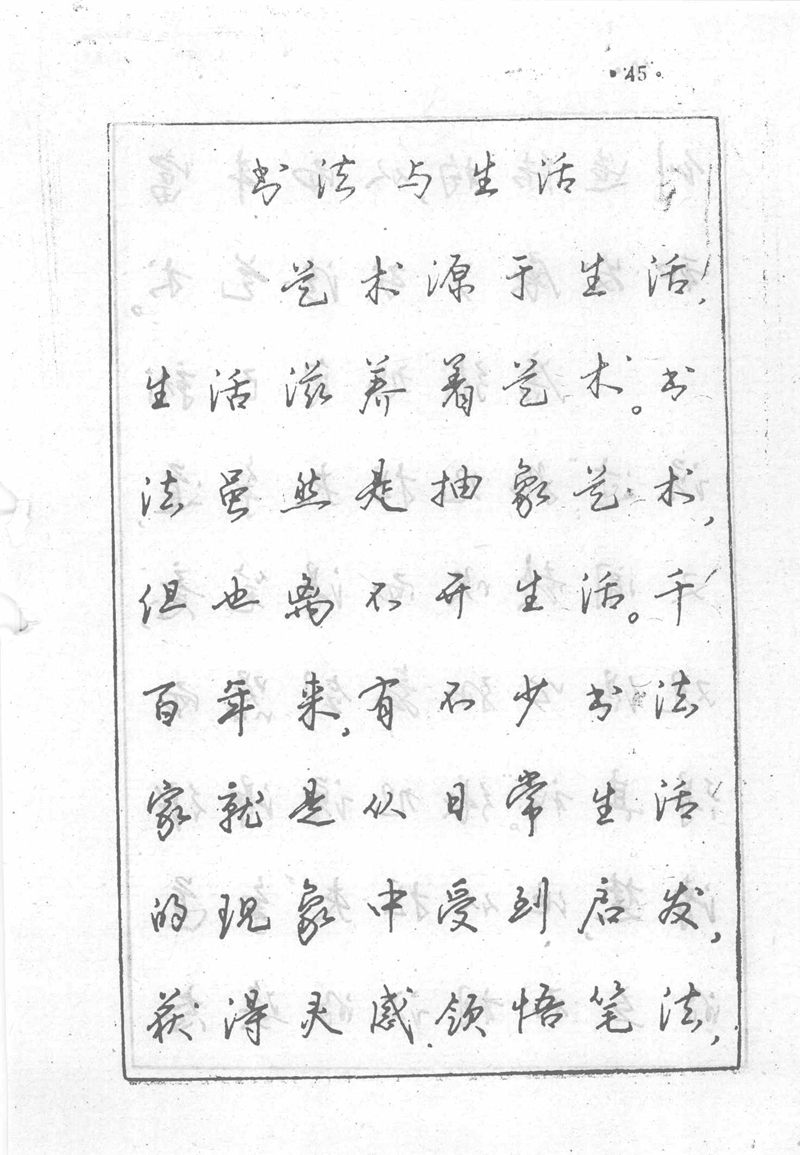 ·45·
书法与生活
艺术源于生活,
生活滋养着艺术。书
法虽然是抽象艺术,
但也离不开生活。千
百年来,有不少书法
家就是从日常生活
的现象中受到启发,
获得灵感.领悟笔法,